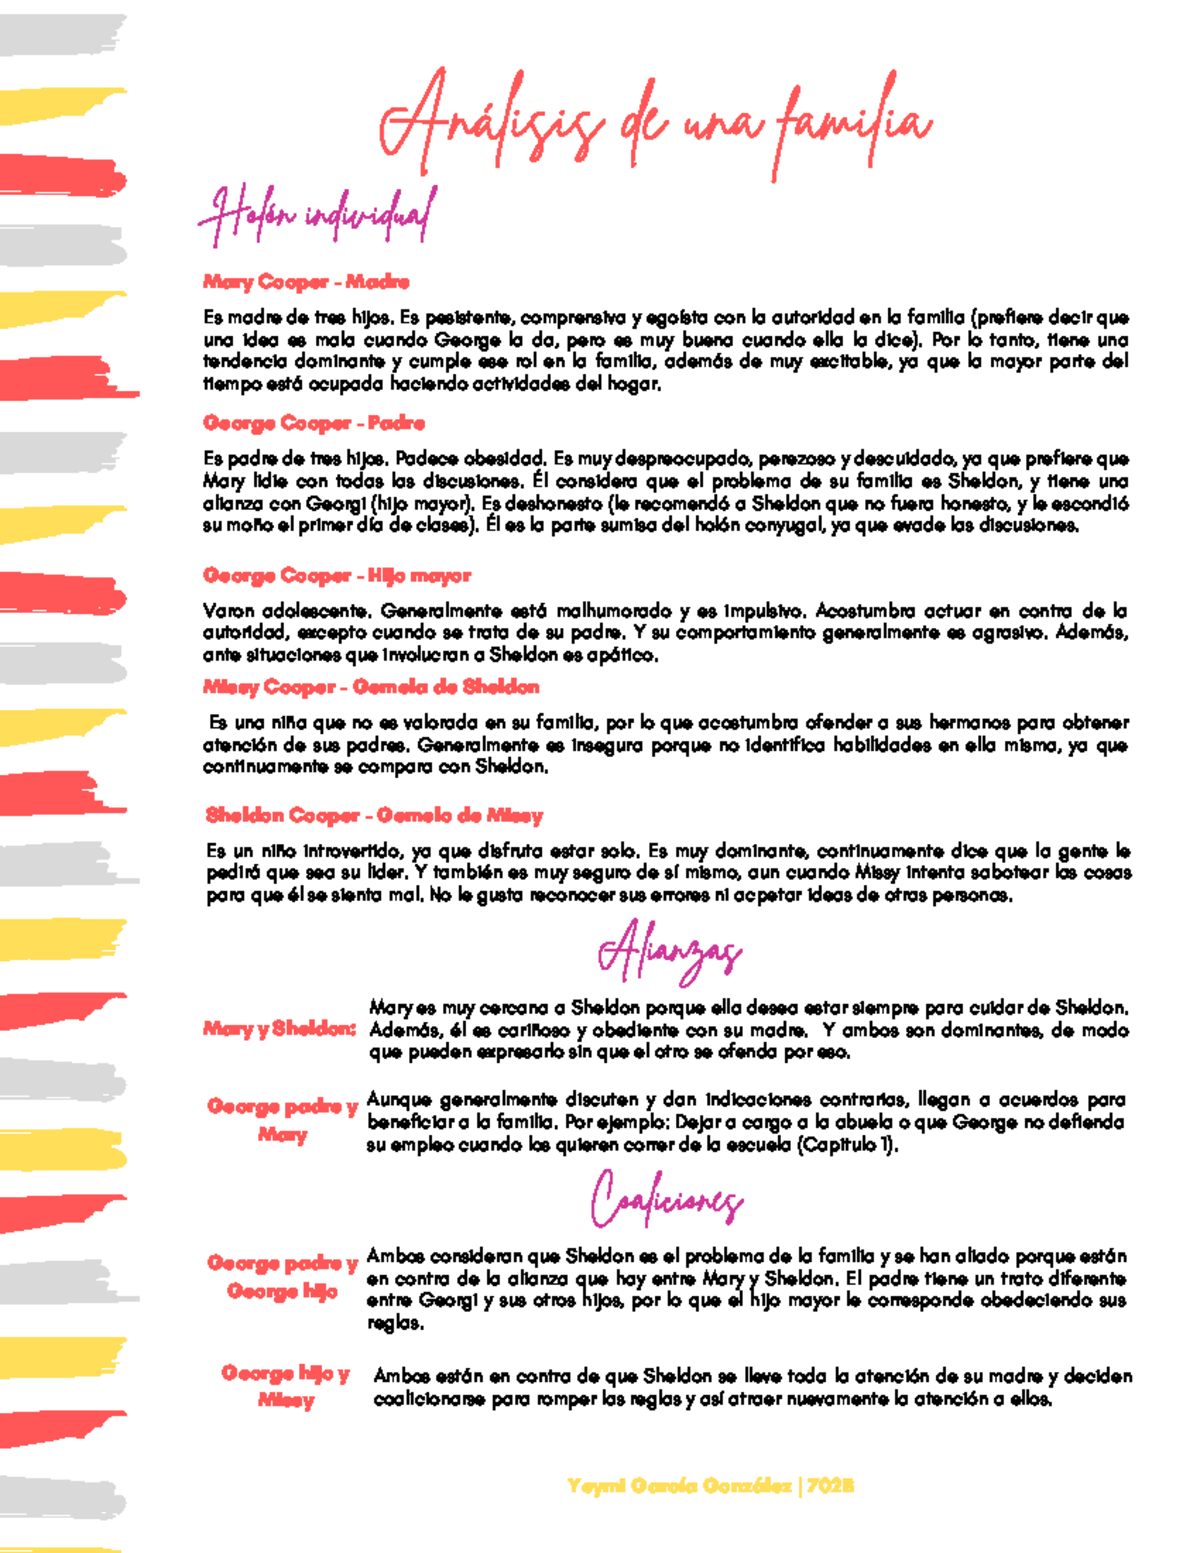 Análisis de una familia
Holón individual
Mary Cooper - Madre
Es madre de tres hijos. Es pesistente, comprensiva y egoísta con la autoridad en la familia (prefiere decir que
una idea es mala cuando George la da, pero es muy buena cuando ella la dice). Por lo tanto, tiene una
tendencia dominante y cumple ese rol en la familia, además de muy excitable, ya que la mayor parte del
tiempo está ocupada haciendo actividades del hogar.
George Cooper - Padre
Es padre de tres hijos. Padece obesidad. Es muy despreocupado, perezoso y descuidado, ya que prefiere que
Mary lidie con todas las discusiones. Él considera que el problema de su familia es Sheldon, y tiene una
alianza con Georgi (hijo mayor). Es deshonesto (le recomendó a Sheldon que no fuera honesto, y le escondió
su moño el primer día de clases). Él es la parte sumisa del holón conyugal, ya que evade las discusiones.
George Cooper - Hijo mayor
Varon adolescente. Generalmente está malhumorado y es impulsivo. Acostumbra actuar en contra de la
autoridad, excepto cuando se trata de su padre. Y su comportamiento generalmente es agrasivo. Además,
ante situaciones que involucran a Sheldon es apático.
Missy Cooper - Gemela de Sheldon
Es una niña que no es valorada en su familia, por lo que acostumbra ofender a sus hermanos para obtener
atención de sus padres. Generalmente es insegura porque no identifica habilidades en ella misma, ya que
continuamente se compara con Sheldon.
Sheldon Cooper - Gemelo de Missy
Es un niño introvertido, ya que disfruta estar solo. Es muy dominante, continuamente dice que la gente le
pedirá que sea su lider. Y también es muy seguro de sí mismo, aun cuando Missy intenta sabotear las cosas
para que él se sienta mal. No le gusta reconocer sus errores ni acpetar ideas de otras personas.
Alianzas
Mary y Sheldon:
Mary es muy cercana a Sheldon porque ella desea estar siempre para cuidar de Sheldon.
Además, él es cariñoso y obediente con su madre. Y ambos son dominantes, de modo
que pueden expresarlo sin que el otro se ofenda por eso.
George padre y
Mary
Aunque generalmente discuten y dan indicaciones contrarias, llegan a acuerdos para
beneficiar a la familia. Por ejemplo: Dejar a cargo a la abuela o que George no defienda
su empleo cuando los quieren correr de la escuela (Capitulo 1).
Coaliciones
George padre y
George hijo
Ambos consideran que Sheldon es el problema de la familia y se han aliado porque están
en contra de la alianza que hay entre Mary y Sheldon. El padre tiene un trato diferente
entre Georgi y sus otros hijos, por lo que el hijo mayor le corresponde obedeciendo sus
reglas.
George hijo y
Missy
Ambos están en contra de que Sheldon se lleve toda la atención de su madre y deciden
coalicionarse para romper las reglas y así atraer nuevamente la atención a ellos.
Yeymi García González | 702B